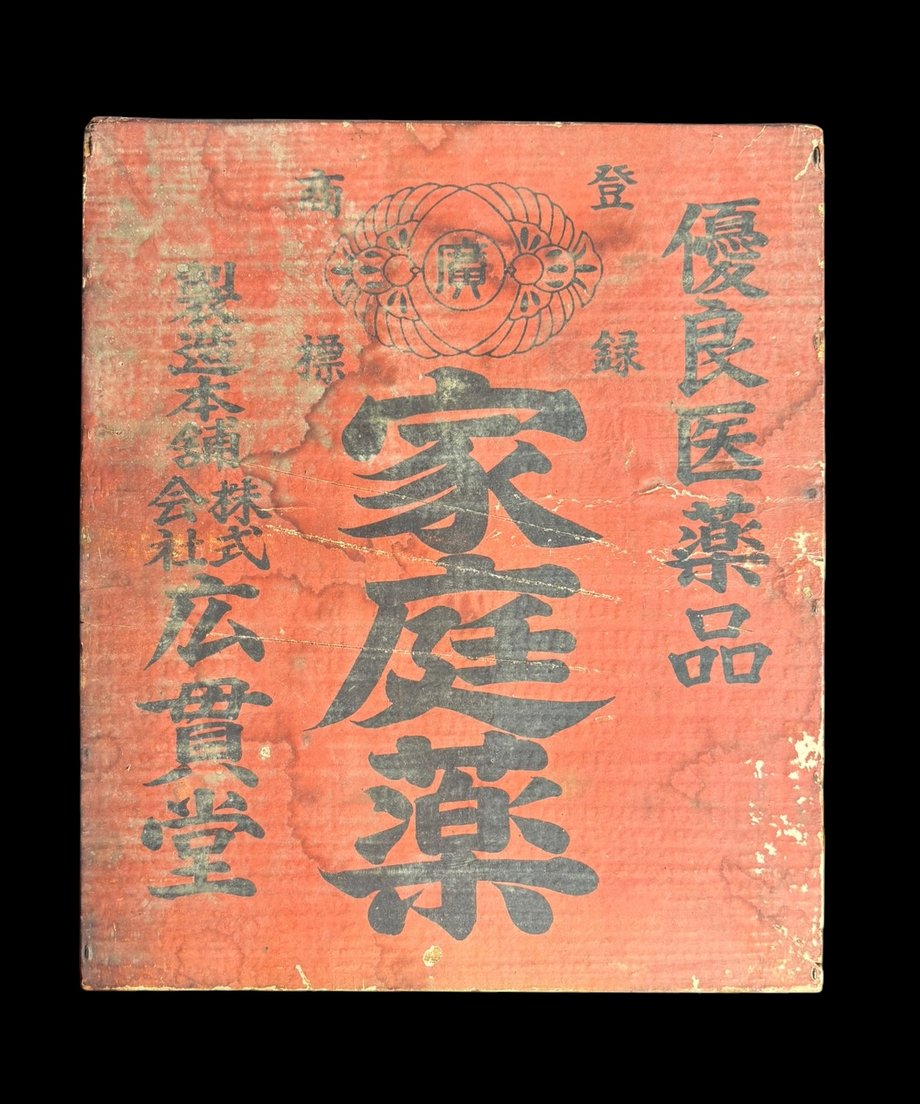 優良医薬品
登録
商標
廣
家庭薬
製造本舗
株式会社
広貫堂